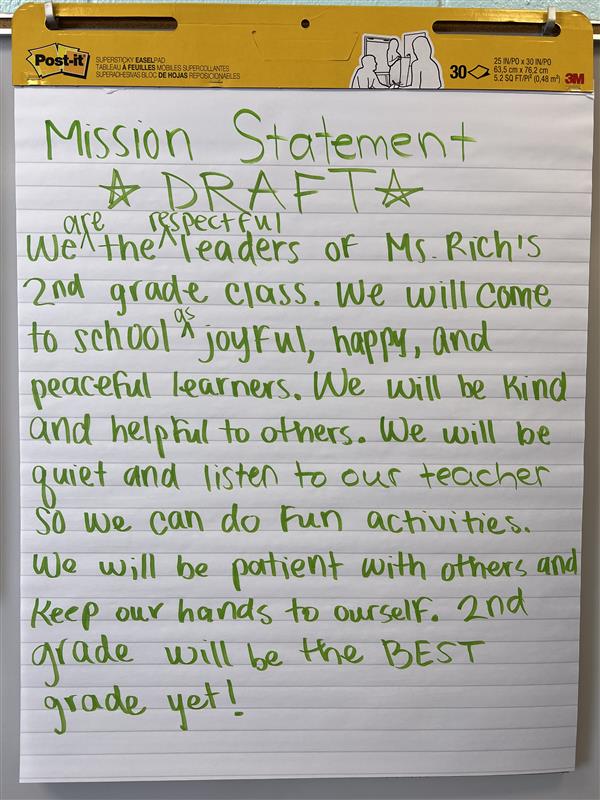 Post-it
SUPERSTICKY EASELPAD
TABLEAU À FEUILLES MOBILES SUPERCOLLANTES
SUPERADHESIVAS BLOC DE HOJAS REPOSICIONABLES
30
25 IN/PO x 30 IN/PO
63,5 cm x 76,2 cm
5.2 SQ FT/PI² (0,48 m²)
3M
Mission Statement
☆ DRAFT ☆
are respectful
We ^ the ^ leaders of Ms. Rich's
2nd grade class. We will come
as
to school ^ joyful, happy, and
peaceful learners. We will be kind
and helpful to others. We will be
quiet and listen to our teacher
so we can do fun activities.
We will be patient with others and
keep our hands to ourself. 2nd
grade will be the BEST
grade yet!